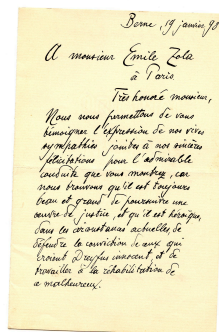 Berne, 19 janvier 98
A monsieur Emile Zola
à Paris
Très honoré monsieur,
Nous nous permettons de vous
témoigner l'expression de nos vives
sympathies jointes à nos sincères
félicitations pour l'admirable
conduite que vous montrez, car
nous trouvons qu'il est toujours
beau et grand de poursuivre une
oeuvre de justice, et qu'il est héroïque,
dans les circonstances actuelles, de
défendre la conviction de ceux qui
croient Dreyfus innocent, et de
travailler à la réhabilitation de
ce malheureux.